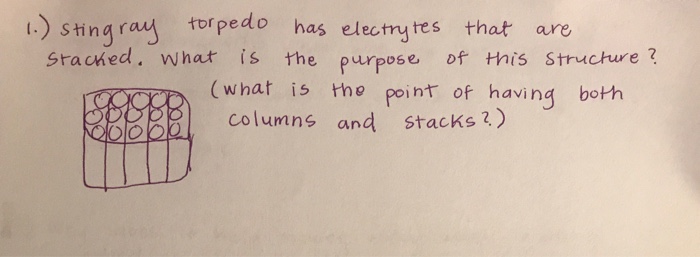 1.) Stingray torpedo has electrytes that are
stacked. What is the purpose of this structure?
(what is the point of having both
columns and stacks?)